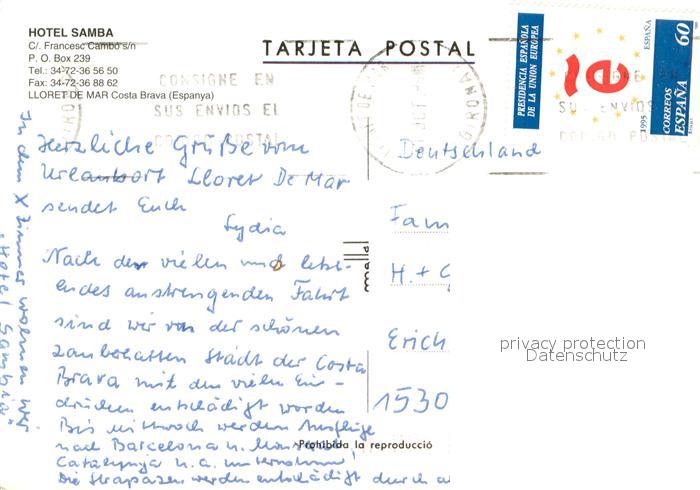 HOTEL SAMBA
C/. Francesc Cambó s/n
P. O. Box 239
Tel.: 34-72-36 56 50
Fax: 34-72-36 88 62
LLORET DE MAR Costa Brava (Espanya)
TARJETA POSTAL
CONSIGNE EN
SUS ENVIOS EL
CODIGO POSTAL
GIRONA
PRESIDENCIA ESPAÑOLA
DE LA UNION EUROPEA
ESPAÑA
1995
CORREOS
ESPAÑA
60
CONSIGNE EN
SUS ENVIOS
CODIGO POSTAL
Herzliche Grüße vom
Urlaubsort Lloret De Mar
sendet Euch
Lydia
Nach der vielen und letzt-
endes anstrengenden Fahrt
sind wir von der schönen
zauberhaften Stadt der Costa
Brava mit den vielen Ein-
drücken entschädigt worden
Bis mittwoch werden Ausflüge
nach Barcelona u.
Catalynja u.a. unternommen,
Die Strapazen werden entschädigt durch
In dem X Zimmer wohnen wir
"Hotel Samba"
Deutschland
Fam
H. + G
Erich
1530
Prohibida la reproducció
privacy protection
Datenschutz